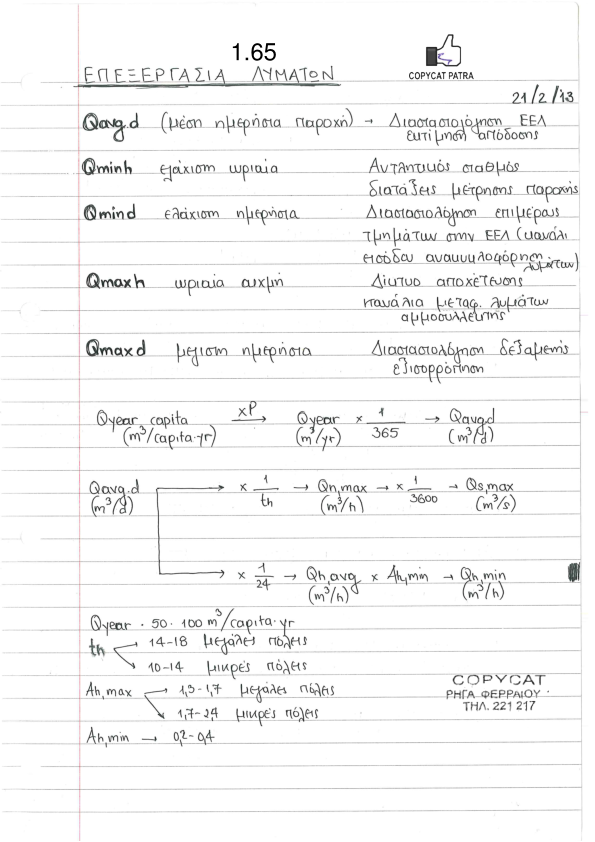 1.65
COPYCAT PATRA
ΕΠΕΞΕΡΓΑΣΙΑ ΛΥΜΑΤΩΝ
21/2/13
Qavg.d (μέση ημερήσια παροχή) → Διαστασιολόγηση ΕΕΛ
εκτίμηση απόδοσης
Qminh ελάχιστη ωριαία Αντλητικός σταθμός
διατάξεις μέτρησης παροχής
Qmind ελάχιστη ημερήσια Διαστασιολόγηση επιμέρους
τμημάτων στην ΕΕΛ (κανάλι
εισόδου ανακυκλοφόρηση λυμάτων)
Qmaxh ωριαία αιχμή Δίκτυο αποχέτευσης
κανάλια μεταφ. λυμάτων
αμμοσυλλέκτης
Qmaxd μέγιστη ημερήσια Διαστασιολόγηση δεξαμενής
εξισορρόπηση
Qyear capita xP → Qyear × 1/365 → Qavg.d
(m³/capita·yr) (m³/yr) (m³/d)
Qavg.d → × 1/th → Qh,max → × 1/3600 → Qs,max
(m³/d) (m³/h) (m³/s)
→ × 1/24 → Qh,avg × Ah,min → Qh,min
(m³/h) (m³/h)
Qyear · 50 · 100 m³/capita·yr
th → 14-18 μεγάλες πόλεις
→ 10-14 μικρές πόλεις
Ah,max → 1,3-1,7 μεγάλες πόλεις
→ 1,7-2,4 μικρές πόλεις
Ah,min → 0,2-0,4
COPYCAT
ΡΗΓΑ ΦΕΡΡΑΙΟΥ
ΤΗΛ. 221 217